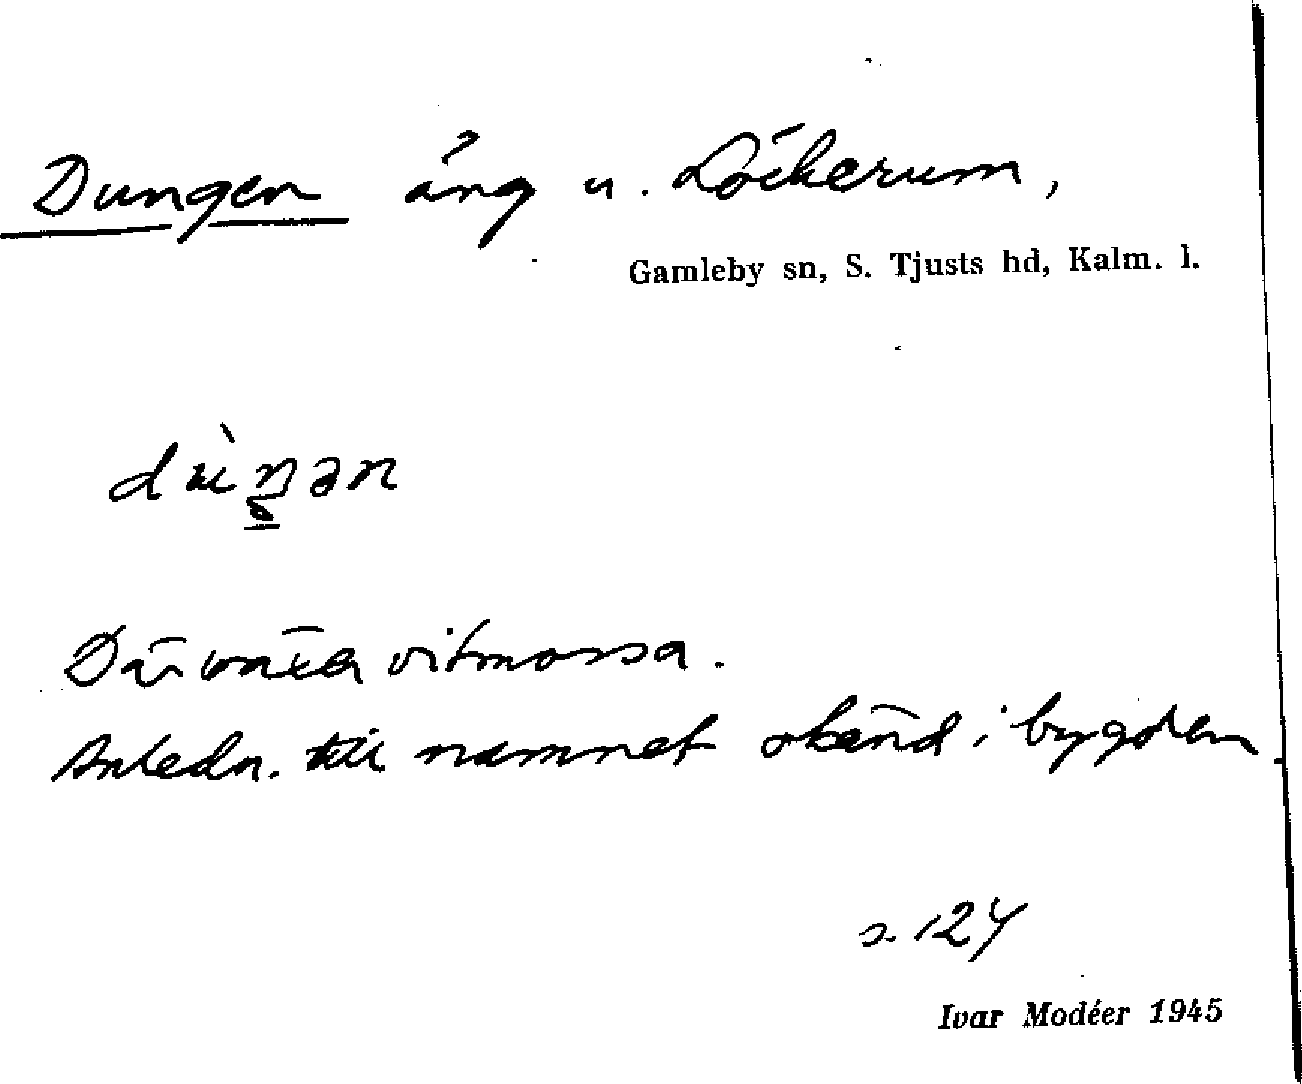 Dungen äng u. Löckerum,
Gamleby sn, S. Tjusts hd, Kalm. l.
dùŋən
Där växer vitmossa.
Anledn. till namnet okänd i bygden.
s. 124
Ivar Modéer 1945